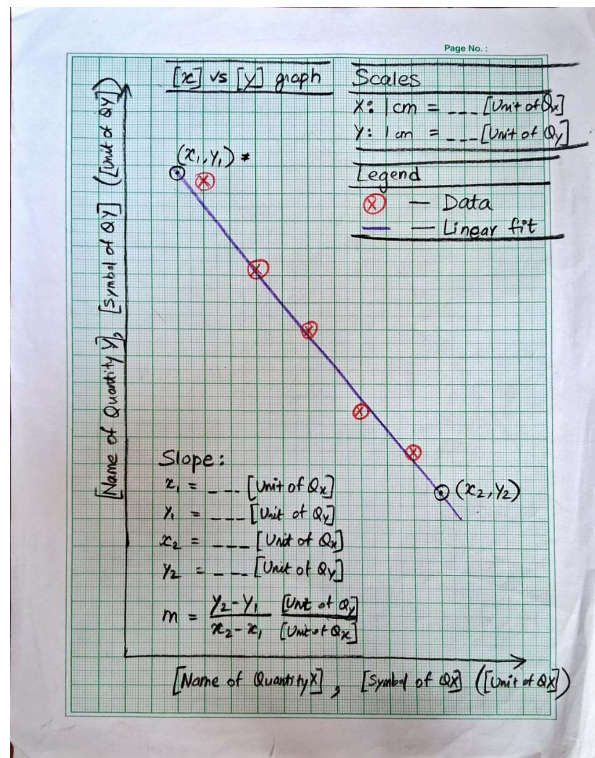 Page No. :
[x] vs [y] graph
Scales
X: 1 cm = ___ [Unit of Qx]
Y: 1 cm = ___ [Unit of Qy]
Legend
ⓧ — Data
— Linear fit
(x₁, y₁) *
[Name of Quantity Y], [Symbol of QY] ([Unit of QY])
Slope:
x₁ = ___ [Unit of Qx]
y₁ = ___ [Unit of Qy]
x₂ = ___ [Unit of Qx]
y₂ = ___ [Unit of Qy]
m = y₂-y₁ / x₂-x₁ [Unit of Qy] / [Unit of Qx]
(x₂, y₂)
[Name of Quantity X], [Symbol of QX] ([Unit of QX])